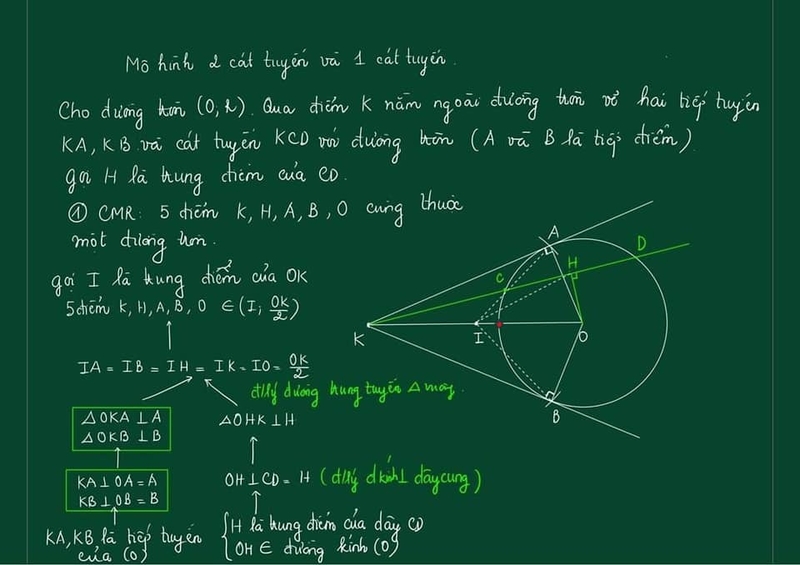 Mô hình 2 cát tuyến và 1 cát tuyến.
Cho đường tròn (O, R). Qua điểm K nằm ngoài đường tròn vẽ hai tiếp tuyến
KA, KB và cát tuyến KCD với đường tròn (A và B là tiếp điểm)
gọi H là trung điểm của CD.
① CMR: 5 điểm K, H, A, B, O cùng thuộc
một đường tròn.
gọi I là trung điểm của OK
5 điểm K, H, A, B, O ∈ (I; OK/2)
IA = IB = IH = IK = IO = OK/2
đ/lý đường trung tuyến Δ vuông.
ΔOKA ⊥ A
ΔOKB ⊥ B
ΔOHK ⊥ H
KA ⊥ OA = A
KB ⊥ OB = B
OH ⊥ CD = H (đ/lý đkính ⊥ dây cung)
KA, KB là tiếp tuyến
của (O)
H là trung điểm của dây CD
OH ∈ đường kính (O)
A
H
D
C
K
I
O
B